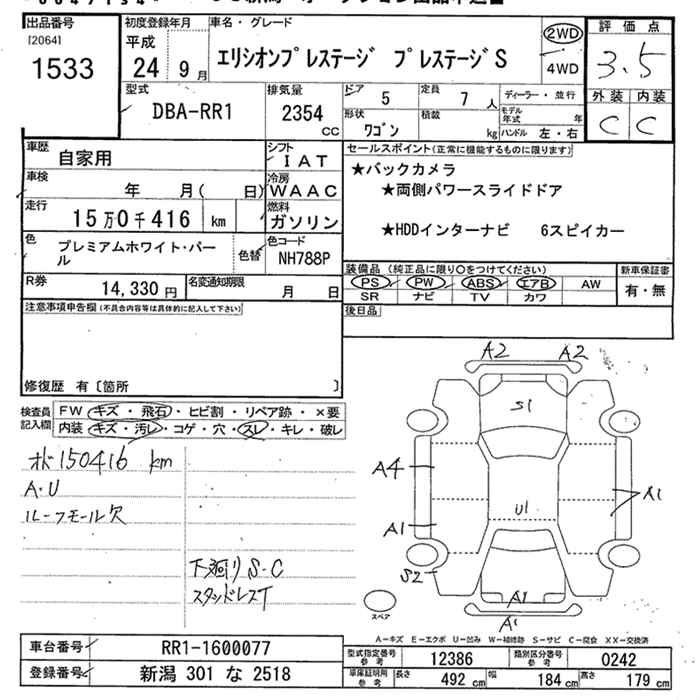 出品番号
[2064]
1533
初度登録年月
平成
24年 9月
車名・グレード
エリシオンプレステージ プレステージS
2WD
4WD
評価点
3.5
外装 内装
C C
型式
DBA-RR1
排気量
2354
CC
ドア 5
定員 7人
ディーラー・並行
形状
ワゴン
積載
kg
モデル年式 年
ハンドル 左・右
車歴
自家用
シフト
IAT
車検
年 月( 日)
冷房
WAAC
走行
15万0千416 km
燃料
ガソリン
色
プレミアムホワイト・パール
色替
色コード
NH788P
セールスポイント(正常に機能するものに限ります)
★バックカメラ
★両側パワースライドドア
★HDDインターナビ 6スピイカー
R券
14,330円
名変通知期限
月 日
装備品 (純正品に限り○をつけてください)
新車保証書
PS PW ABS エアB AW
SR ナビ TV カワ
有・無
注意事項申告欄(不具合内容等は具体的に記入して下さい)
後日品
修復歴 有〔箇所 〕
検査員記入欄
FW キズ・飛石・ヒビ割・リペア跡・×要
内装 キズ・汚レ・コゲ・穴・スレ・キレ・破レ
150416 km
A・U
ルーフモール欠
下廻りS・C
スタッドレスT
A2 A2
S1
A4
U1
A1
A1
S2
A1
A1
スペア
A-キズ E-エクボ U-凹み W-補修跡 S-サビ C-腐食 XX-交換済
車台番号
RR1-1600077
登録番号
新潟 301 な 2518
型式指定番号 参考
12386
類別区分番号 参考
0242
車庫証明用 参考
長さ 492 cm
幅 184 cm
高さ 179 cm